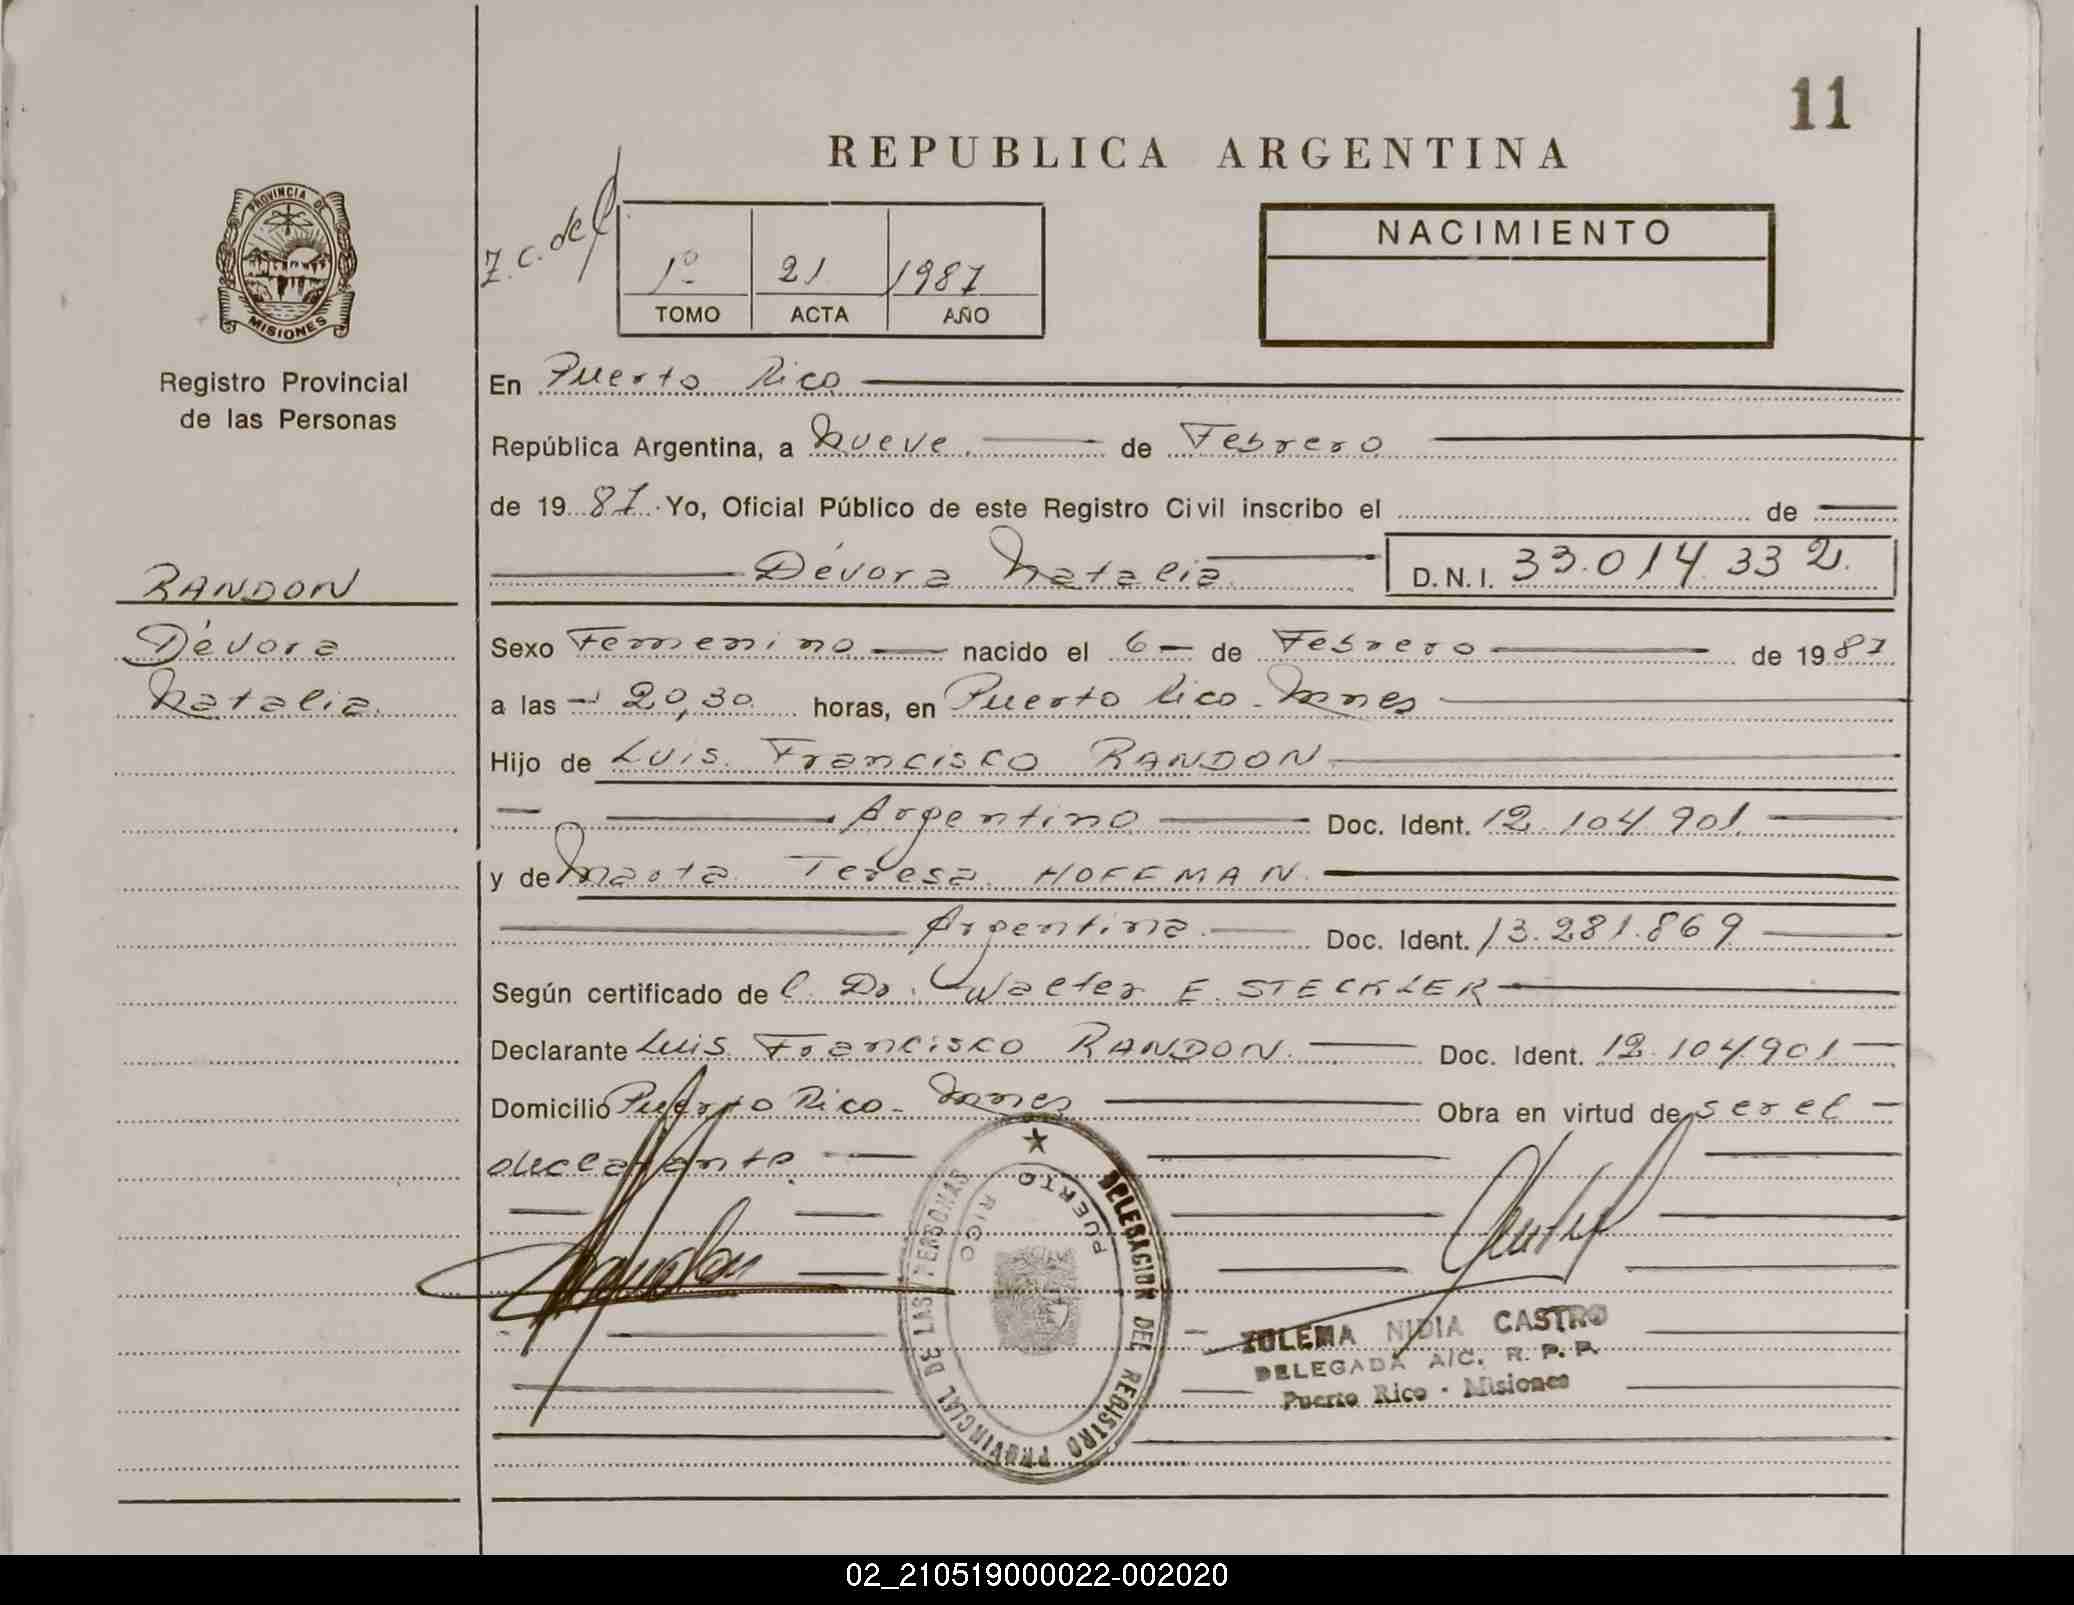 11
REPUBLICA ARGENTINA
PROVINCIA DE
MISIONES
Registro Provincial
de las Personas
1º 21 1987
TOMO ACTA AÑO
NACIMIENTO
En Puerto Rico
República Argentina, a Nueve de Febrero
de 1987 Yo, Oficial Público de este Registro Civil inscribo el de
Dévora Natalia. D.N.I. 33.014.332.
RANDON
Dévora
Natalia.
Sexo Femenino nacido el 6 de Febrero de 1987
a las 20,30 horas, en Puerto Rico - Mnes
Hijo de Luis Francisco RANDON
Argentino Doc. Ident. 12.104.901.
y de Marta Teresa HOFFMAN.
Argentina Doc. Ident. 13.281.869
Según certificado de l. Dr. Walter E. STECKLER
Declarante Luis Francisco RANDON. Doc. Ident. 12.104.901
Domicilio Puerto Rico - Mnes Obra en virtud de ser el
declarante.
DELEGACION DEL REGISTRO PROVINCIAL DE LAS PERSONAS
PUERTO RICO
ZULEMA NIDIA CASTRO
DELEGADA A/C. R. P. P.
Puerto Rico - Misiones
02_210519000022-002020